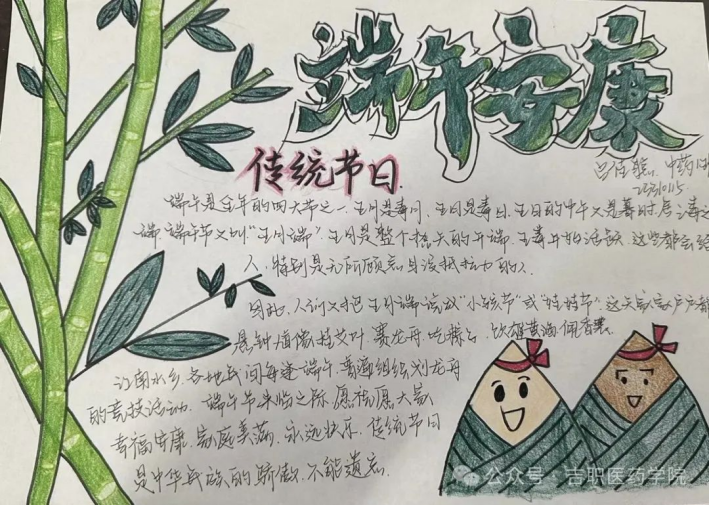 端午安康
传统节日
吕佳
中药
端午是全年的四大节之一,五月是毒月,五日是毒日,五日的中午又是毒时,居三毒之
端,端午节又叫"五月端",五月是整个热天的开端,五毒开始活跃,这些都会给
人,特别是无所顾忌与没抵抗力的人
因此,人们又把五月端说成"小孩节"或"娃娃节",这天家家户户都
悬钟馗像挂艾叶,赛龙舟,吃粽子,饮雄黄酒,佩香囊
江南水乡,各地民间每逢端午,普遍组织划龙舟
的竞技活动,端午节来临之际,愿祝愿大家
幸福安康,家庭美满,永远快乐,传统节日
是中华民族的骄傲,不能遗忘
公众号·吉职医药学院